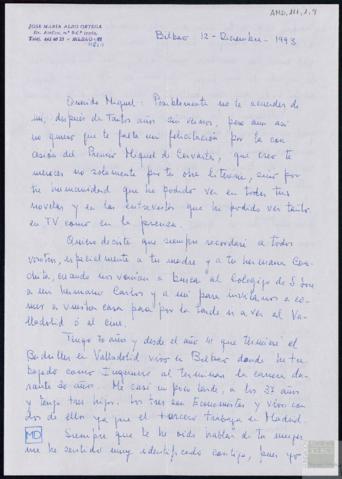 AMD, 111, 1, 9
JOSE MARIA ALBO ORTEGA
Bilbao 12 - Diciembre - 1993
Querido Miguel: Posiblemente no te acuerdes de
mi, después de tantos años sin vernos, pero aun así
no quiero que te falte mi felicitación por la con
cesión del Premio Miguel de Cervantes, que creo te
mereces no solamente por tu obra literaria, sino por
tu humanidad que he podido ver en todas tus
novelas y en las entrevistas que he podido ver tanto
en TV como en la prensa.
Quiero decirte que siempre recordaré a todos
vosotros, especialmente a tu madre y a tu hermana Con-
chita, cuando nos venían a buscar al Colegio de S. José
a mi hermano Carlos y a mí para invitarnos a co-
mer a vuestra casa para por la tarde ir a ver al Va-
lladolid ó al cine.
Tengo 70 años y desde el año 41 que terminé el
Bachiller en Valladolid vivo en Bilbao donde he tra-
bajado como Ingeniero al terminar la carrera du-
rante 30 años. Me casé un poco tarde, a los 37 años
y tengo tres hijos. Los tres son Economistas y vivo con
dos de ellos ya que el tercero trabaja en Madrid.
Siempre que te he oído hablar de tu mujer
me he sentido muy identificado contigo, pues yo
MD